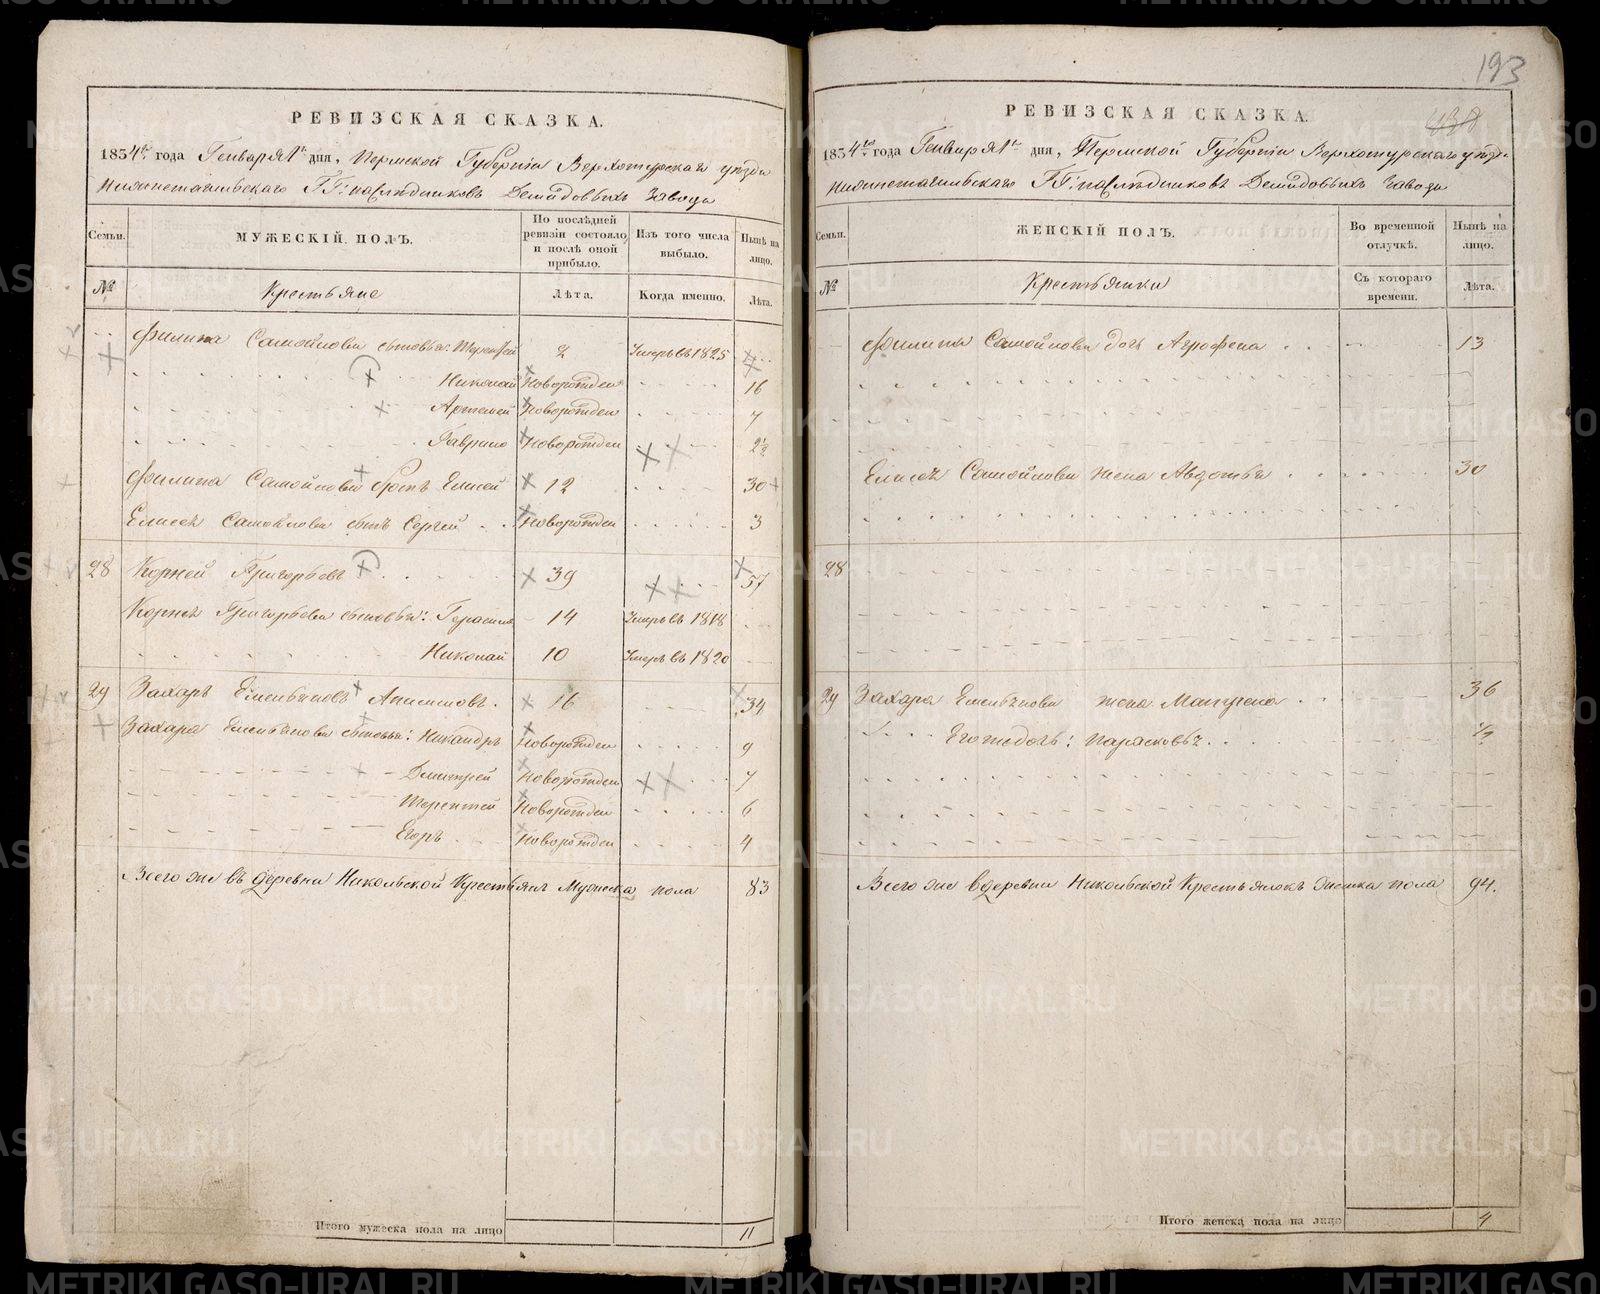 193
РЕВИЗСКАЯ СКАЗКА.
1834го года Генваря 1го дня, Пермской Губерніи Верхотурскаго уѣзда
Нижнетагильскаго ГГ: наслѣдниковъ Демидовыхъ Завода
Семьи.
МУЖЕСКІЙ ПОЛЪ.
По послѣдней ревизіи состояло и послѣ оной прибыло.
Изъ того числа выбыло.
Нынѣ на лицо.
№
Крестьяне
Лѣта.
Когда именно.
Лѣта.
Филипа Самойлова сыновья: 2 Умеръ въ 1825
Николай Новорожден 16
Артемей Новорожден 7
Гаврило Новорожден 2½
Филипа Самойлова братъ Елисей 12 30
Елисея Самойлова сынъ Сергей Новорожден 3
28 Корней Григорьевъ 39 57
Корнея Григорьева сыновья: Герасимъ 14 Умеръ въ 1818
Николай 10 Умеръ въ 1820
29 Захаръ Емельяновъ Анисимовъ 16 34
Захара Емельянова сыновья: Никандръ Новорожден 9
Дмитрей Новорожден 7
Терентей Новорожден 6
Егоръ Новорожден 4
Всего же въ деревни Никольской Крестьянъ Мужеска пола 83
Итого мужеска пола на лицо 11
РЕВИЗСКАЯ СКАЗКА.
1834го года Генваря 1го дня, Пермской Губерніи Верхотурскаго уѣзда
Нижнетагильскаго ГГ: наслѣдниковъ Демидовыхъ Завода
Семьи.
ЖЕНСКІЙ ПОЛЪ.
Во временной отлучкѣ.
Нынѣ на лицо.
№
Крестьянки
Съ котораго времени.
Лѣта.
Филипа Самойлова дочь Агрофена 13
Елисея Самойлова жена Авдотья 30
28
29 Захара Емельянова жена Матрена 36
Его же дочь: Парасковья ½
Всего же въ деревни Никольской Крестьянокъ женска пола 94.
Итого женска пола на лицо 4
METRIKI.GASO-URAL.RU